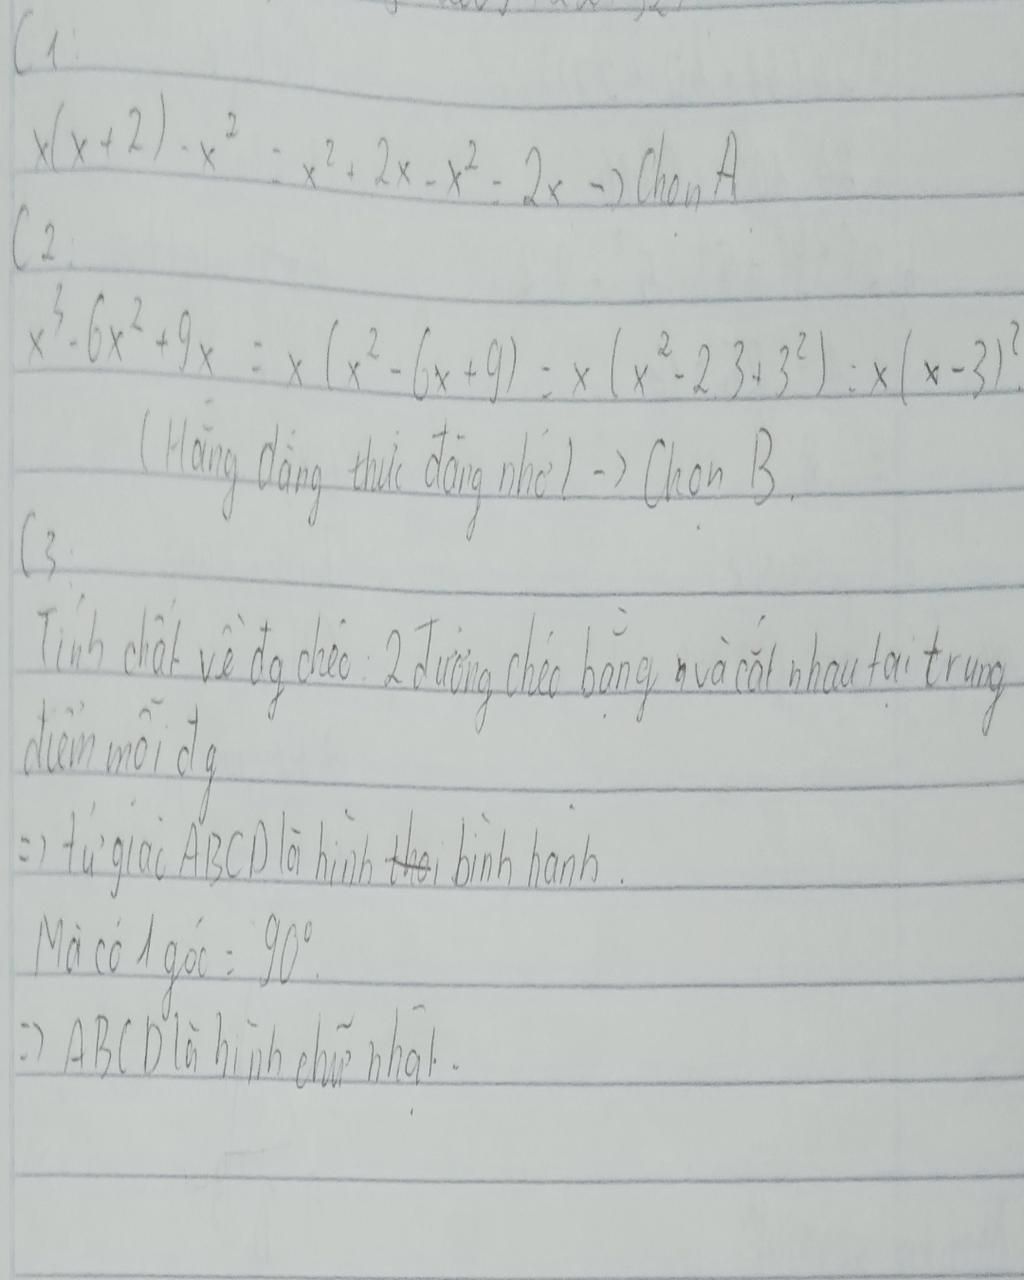 C1:
x(x+2) - x² = x² + 2x - x² = 2x -> Chọn A
C2:
x³ - 6x² + 9x = x(x² - 6x + 9) = x(x² - 2.3 + 3²) = x(x - 3)².
(Hằng đẳng thức đáng nhớ) -> Chọn B.
C3:
Tính chất về đg chéo: 2 đường chéo bằng n và cắt nhau tại trung
điểm mỗi đg
=> tứ giác ABCD là hình thoi bình hành.
Mà có 1 góc = 90°.
=> ABCD là hình chữ nhật.